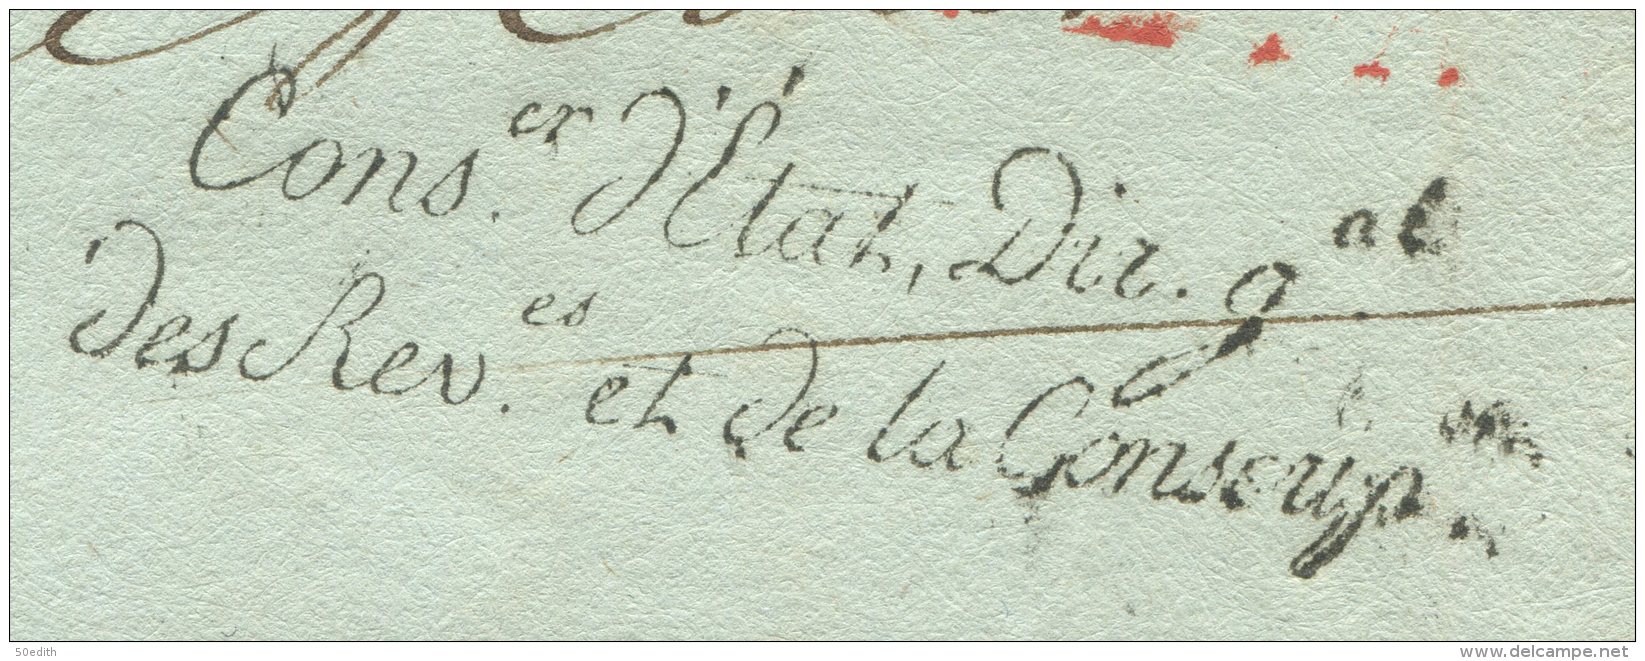 Cons.er d'État, Dir. gal
des Rev.es et de la Conscrip.on
50edith
www.delcampe.net